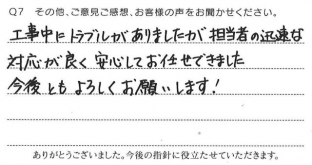 Q7 その他、ご意見ご感想、お客様の声をお聞かせください。
工事中にトラブルがありましたが担当者の迅速な
対応が良く安心してお任せできました
今後ともよろしくお願いします！
ありがとうございました。今後の指針に役立たせていただきます。